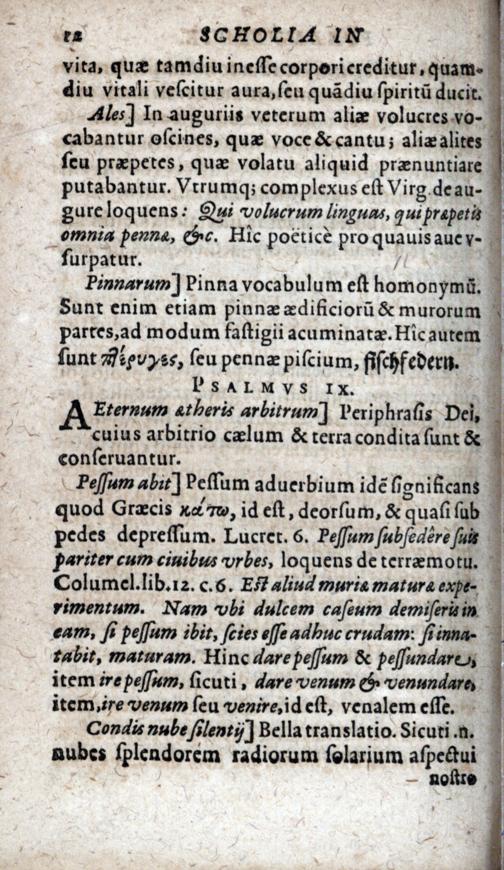 12 SCHOLIA IN
vita, quæ tamdiu inesse corpori creditur, quam-
diu vitali vescitur aura, seu quādiu spiritū ducit.
Ales] In auguriis veterum aliæ volucres vo-
cabantur oscines, quæ voce & cantu; aliæ alites
seu præpetes, quæ volatu aliquid prænuntiare
putabantur. Vtrumq; complexus est Virg. de au-
gure loquens: Qui volucrum linguas, qui præpetis
omnia pennæ, &c. Hîc poëticè pro quauis aue v-
surpatur.
Pinnarum] Pinna vocabulum est homonymū.
Sunt enim etiam pinnæ ædificiorū & murorum
partes, ad modum fastigii acuminatæ. Hîc autem
sunt πτέρυγες, seu pennæ piscium, fischfedern.
PSALMVS IX.
AEternum ætheris arbitrum] Periphrasis Dei,
cuius arbitrio cælum & terra condita sunt &
conseruantur.
Pessum abit] Pessum aduerbium idē significans
quod Græcis κάτω, id est, deorsum, & quasi sub
pedes depressum. Lucret. 6. Pessum subsedêre suis
pariter cum ciuibus vrbes, loquens de terræmotu.
Columel. lib. 12. c. 6. Est aliud muriæ maturæ expe-
rimentum. Nam vbi dulcem caseum demiseris in
eam, si pessum ibit, scies esse adhuc crudam: si inna-
tabit, maturam. Hinc dare pessum & pessundare,
item ire pessum, sicuti, dare venum & venundare,
item, ire venum seu venire, id est, venalem esse.
Condis nube silentij] Bella translatio. Sicuti .n.
nubes splendorem radiorum solarium aspectui
nostro